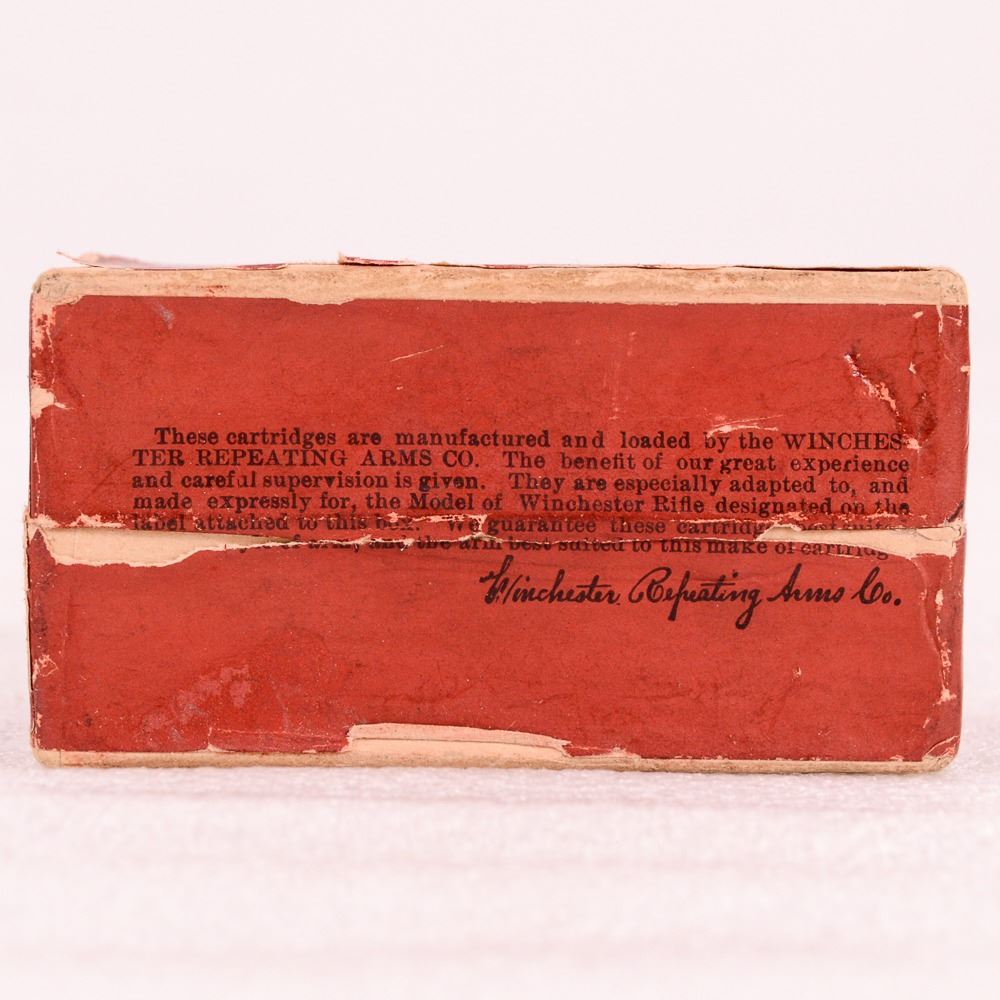 These cartridges are manufactured and loaded by the WINCHES-
TER REPEATING ARMS CO. The benefit of our great experience
and careful supervision is given. They are especially adapted to, and
made expressly for, the Model of Winchester Rifle designated on the
label attached to this box. We guarantee these cartridg
of arm, and the arm best suited to this make of cartridg
Winchester Repeating Arms Co.